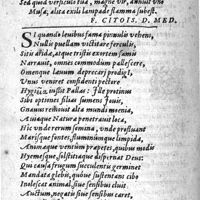 Sed quid versiculis tua, magne vir, annuit vno
Musa, alta exili lampade flamma subest.
F. CITOIS. D. MED.
SI quando leuibus fama pinnulis vehens,
Nullis puellam victitare ferculis,
Siti arida, atque tristi exertem fami
Narrauit, omnes commodum pallescere,
Omenque lænum deprecari prodigî,
Vnus veneret confidenti pectore
Hygiæa, iussit Pallas: Ille protinus
Sibi potiones filias sumens Iouis,
Remotus euolat vltra mundi mœnia
Naturæ penetrat loca,
Hic vnde rerum semina, vnde profluant
Maris fontes, fluminumque limpida,
Animaque ventûm præpetes, quibus medij
Hyemesque, fulgetraque dispernat Deus:
Quo caussa frugum succulenti germinet
Mandata glebis, quiue sustentans cibo
Inolescat animal, siue sensibus cluit
Auctum, negatis siue sensibus caret,